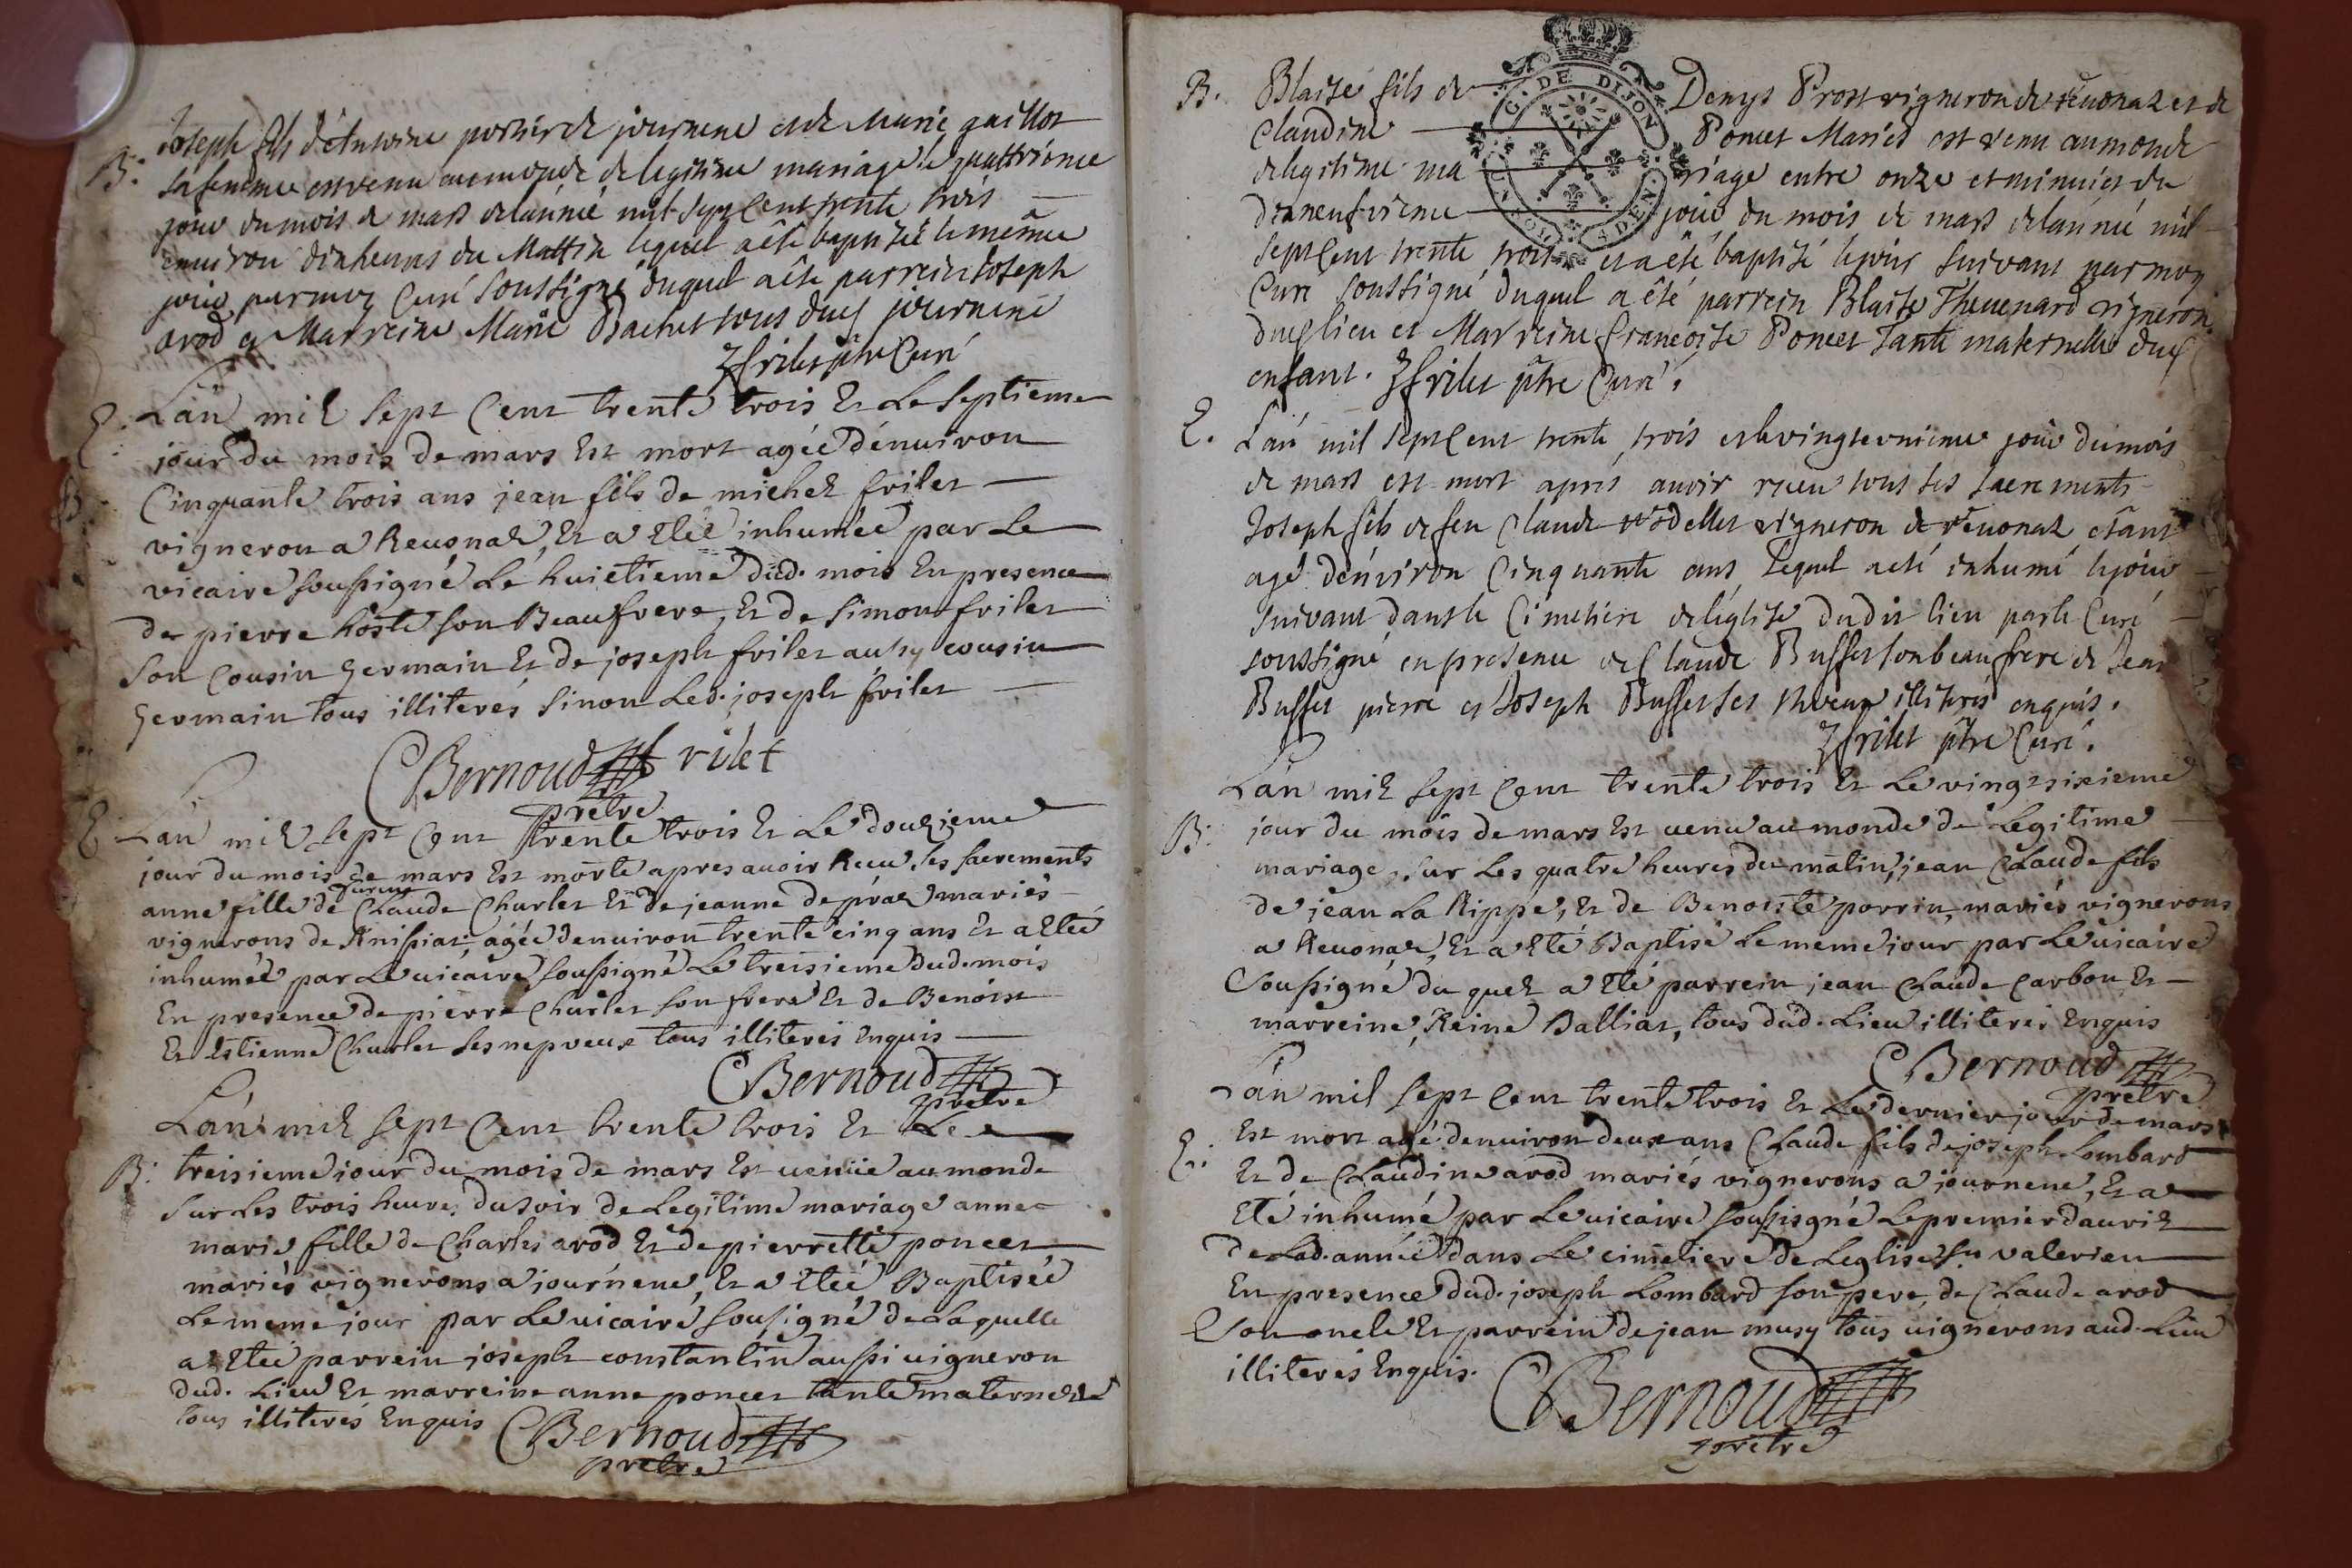 B. Joseph fils d'Antoine portier de journene et de Marie guillot
sa femme est venu au monde de legitime mariage le quattrieme
jour du mois de mars de l'année mil sept cent trente trois
environ dix heures du Mattin lequel a été baptisé le même
jour par moy Curé soussigné duquel a été parrein Joseph
arod et Marreine Marie Bachet tous dud journene
frilet ptre Curé
E. L'an mil sept Cent trente trois Et Le septieme
jour du mois de mars Est mort agée d'énuiron
Cinquante trois ans jean fils de michel frilet
vigneron a Reuonaz, Et a Eteé inhumée par Le
vicaire soussigné Le huictieme dud. mois En presence
de pierre hoste son Beaufrere, Et de simon frilet
son Cousin germain Et de joseph frilet aussy cousin
germain tous illiterés sinon Led. joseph frilet
CBernoud frilet
prêtre
E. L'an mil sept Cent trente trois Et Le douzieme
jour du mois de mars Est morte apres auoir Receu ses sacrements
anne fille de Claude Charlet Et de jeanne de mariés
vignerons de agée denuiron trente cinq ans Et a Eteé
inhumée par Le uicaire soussigné Le treisieme dud. mois
En presence de pierre Charlet son frere Et de Benoist
Et Estienne Charlet ses nepveux tous illiterés Enquis
CBernoud
prêtre
L'an mil sept Cent trente trois Et Le
B: treisieme jour du mois de mars Est venüe au monde
sur Les trois heures du soir de Legitime mariage anne
marie fille de Charles arod Et de pierrette poncet
mariés vignerons a journene, Et a Eteé Baptisée
Le meme jour par Le uicaire sousigné de Laquelle
a Eteé parrein joseph constantin aussi uigneron
dud. Lieu Et marreine anne poncet tante maternelle
tous illiterés Enquis CBernoud
prêtre
B. Blaise fils de Denys Prost vigneron de reuonaz et de
Claudine Poncet Mariés est venu au monde
de legitime mariage entre onze et minuict du
dixneufvieme jour du mois de mars de l'année mil
sept Cent trente trois et a été baptisé le jour suivant par moy
Curé soussigné duquel a été parrein Blaise Theuenard vigneron
dud lieu et Marreine francoise Poncet tante maternelle dud
enfant. frilet ptre Curé.
E. L'an mil sept Cent trente trois et le vingt jour du mois
de mars est mort aprés auoir receu tous ses sacrements
Joseph fils de feu Claude rodellet vigneron de reuonaz etant
agé d'énviron Cinquante ans lequel a eté inhumé le jour
suivant dans le Cimetiere de l'églisé dudit lieu par le Curé
soussigné en presence de Claude Buffet son beaufrere de Jean
Buffet pierre et Joseph Buffet ses neveux illiterés enquis.
frilet ptre Curé.
L'an mil sept Cent trente trois Et Le vingtsixieme
B: jour du mois de mars Est uenu au monde de Legitime
mariage, sur Les quatre heures du matin, jean Claude fils
de jean La Rippe, Et de Benoiste perrin, mariés vignerons
a Reuonaz, Et a Eté Baptisé Le meme jour par Le uicaire
Soussigné du quel a Eté parrein jean Claude Carbon Et
marreine, Reine Balliat, tous dud. Lieu illiterés Enquis
CBernoud
prêtre
L'an mil sept Cent trente trois Et Le dernier jour de mars
E: Est mort agé denuiron deux ans Claude fils de joseph Lombard
Et de Claudine arod mariés vignerons a journene, Et a
Eté inhumé par Le uicaire soussigné Le premier dauril
de Lad. année dans Le cimetiere de Leglise St valerien
En presence dud. joseph Lombard son pere, de Claude arod
son oncle Et parrein de jean musy tous uignerons aud. Lieu
illiterés Enquis.
CBernoud
prêtre
G. DE DIJON
4 DEN.